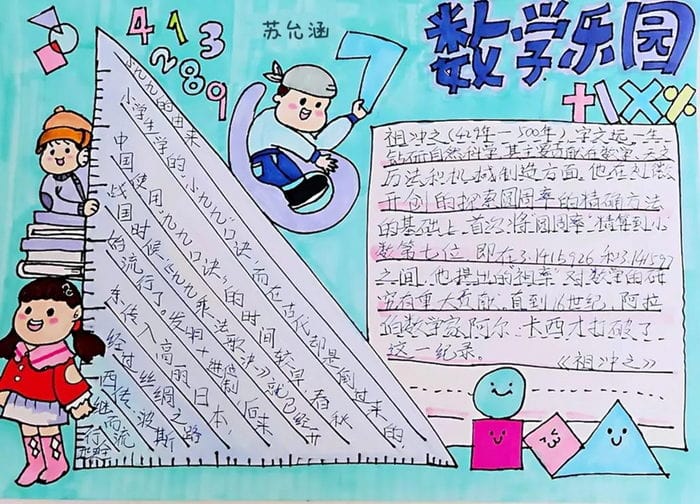 数学乐园
苏允涵
4 1 3
2 8 9 9
6 7
+ \ × %
小九九的由来
小学生学的"小九九"口诀,而在古代却是倒过来的。
中国使用"九九口诀"的时间较早,春秋
战国时候,《九九乘法歌诀》就已经开
始流行了。发明十进制后来
东传入高丽、日本,
经过丝绸之路
西传、波斯
继而流
行
祖冲之(429年—500年)字文远。一生
钻研自然科学,其主要贡献在数学、天文
历法和机械制造方面。他在刘徽
开创的探索圆周率的精确方法
的基础上,首次将"圆周率"精算到小
数第七位,即在3.1415926和3.141597
之间,他提出的"祖率"对数学的研
究有重大贡献。直到16世纪,阿拉
伯数学家阿尔·卡西才打破了
这一纪录。
《祖冲之》